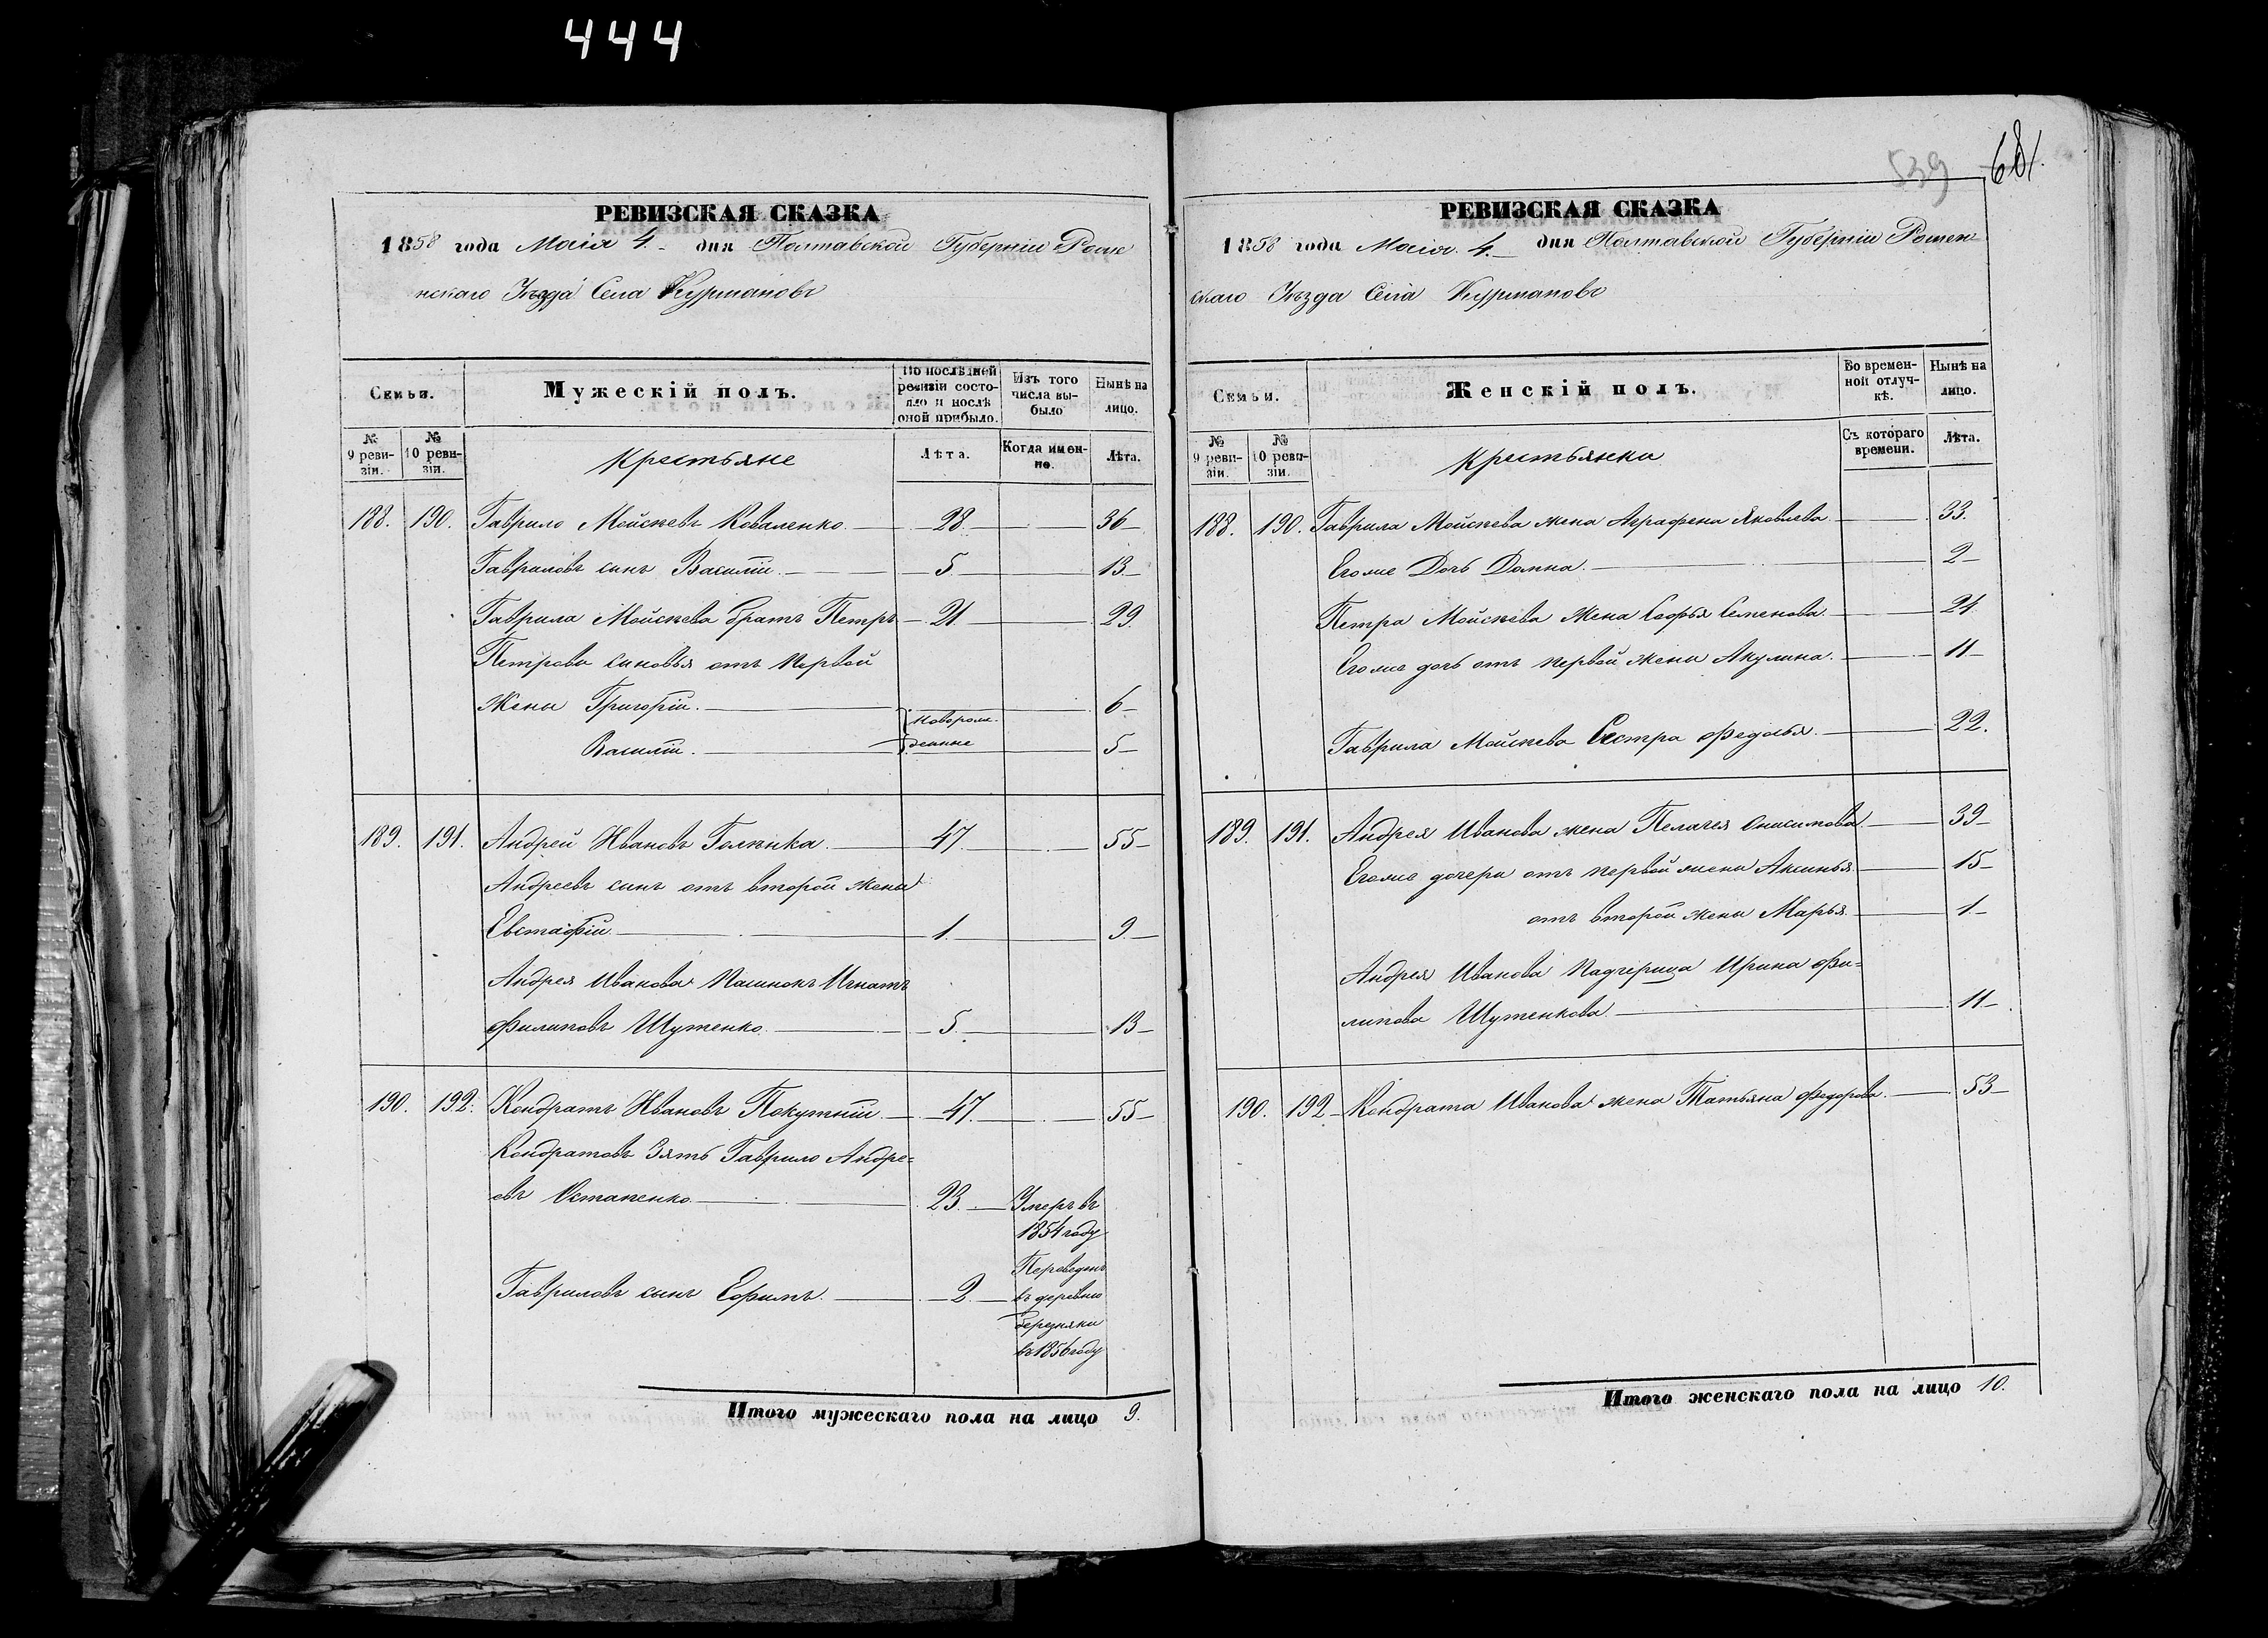 444
РЕВИЗСКАЯ СКАЗКА
1858 года Маія 4. дня Полтавской Губерніи Роме
нскаго Уѣзда Села Курмановъ
Семьи.
Мужескій полъ.
По послѣдней ревизіи состояло и послѣ оной прибыло.
Изъ того числа выбыло
Нынѣ на лицо.
№ 9 ревизіи.
№ 10 ревизіи.
Крестьяне
Лѣта.
Когда именно.
Лѣта.
188. 190. Гаврило Мойсѣевъ Коваленко. 28 36
Гавриловъ сынъ Василій. 5 13
Гаврила Мойсѣева братъ Петръ 21 29
Петрова сыновья отъ первой
жены Григорій. новорож- 6
Василій. денные 5
189. 191. Андрей Ивановъ Голѣнка. 47 55
Андреевъ сынъ отъ второй жены
Евстафій. 1. 9
Андрея Иванова пасынокъ Игнатъ
Филиповъ Шутенко. 5. 13
190. 192. Кондратъ Ивановъ Покутній. 47. 55
Кондратовъ Зять Гаврило Андре=
евъ Остапенко 23. Умеръ въ
1854 году
Гавриловъ сынъ Ефимъ. 2 Переведенъ
въ деревню
березняки
въ 1856 году
Итого мужескаго пола на лицо 9.
539 681.
РЕВИЗСКАЯ СКАЗКА
1858 года Маія 4. дня Полтавской Губерніи Ромен
скаго Уѣзда Села Курмановъ
Семьи.
Женскій полъ.
Во временной отлучкѣ.
Нынѣ на лицо.
№ 9 ревизіи.
№ 10 ревизіи.
Крестьянки
Съ котораго времени.
Лѣта.
188. 190. Гаврила Мойсѣева жена Аграфена Яковлева 33.
Егоже Дочь Домна. 2
Петра Мойсѣева Жена Софья Семенова 21
Егоже дочь отъ первой жены Акулина. 11
Гаврила Мойсѣева Сестра Федосья. 22.
189. 191. Андрея Иванова жена Пелагея Онисимова 39
Егоже дочери отъ первой жены Аксинья. 15
отъ второй жены Марья. 1
Андрея Иванова Падчерица Ирина Фи=
липова Шутенкова. 11
190. 192 Кондрата Иванова жена Татьяна Федорова. 53
Итого женскаго пола на лицо 10.